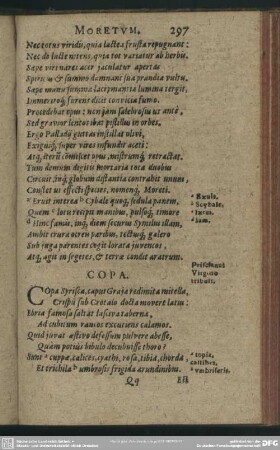 MORETVM. 297
Nec totus viridis, quia lactea frusta repugnant:
Nec de lacte nitens, quia tot variatur ab herbis.
Sæpe viri nares acer jaculatur apertas
Spiritus & simo damnat sua prandia vultu,
Sæpe manu summa lacrymantia lumina tergit,
Immeritoque furens dicit convicia fumo.
Procedebat opus: non jam salebrosus ut antè,
Sed gravior lentos ibat pistillus in orbes.
Ergo Palladii guttas instillat olivi,
Exiguique super vires infundit aceti:
Atque iterum commiscet opus, mistumque retractat.
Tum demum digitis mortaria tota duobus
Circuit, inque globum distantia contrahit unum,
Constet ut effecti species, nomenque Moreti.
Eruit interea Cybale quoque, sedula panem,
Quem locis recipit manibus, pulsoque timore
Hinc famis, inque diem securus Simylus illam,
Ambit crura ocreis paribus, tectusque galero
Sub juga parentes cogit lorata juvencos,
Atque agit in segetes, & terræ condit aratrum.
a Exuia.
b Scybale.
c
d Iam.
COPA.
Copa Syrisca, caput Graja redimita mitella,
Crispum sub Crotalo docta movere latus:
Ebria famosa saltat lasciva taberna,
Ad cubitum raucos excutiens calamos.
Quid juvat æstivo defessum pulvere abesse,
Quàm potius bibulo decubuisse thoro?
Sunt cuppæ, calices, cyathi, rosa, tibia, chorda
Et trichila umbrosis frigida arundinibus.
a topia,
b umbriferis.
Qq